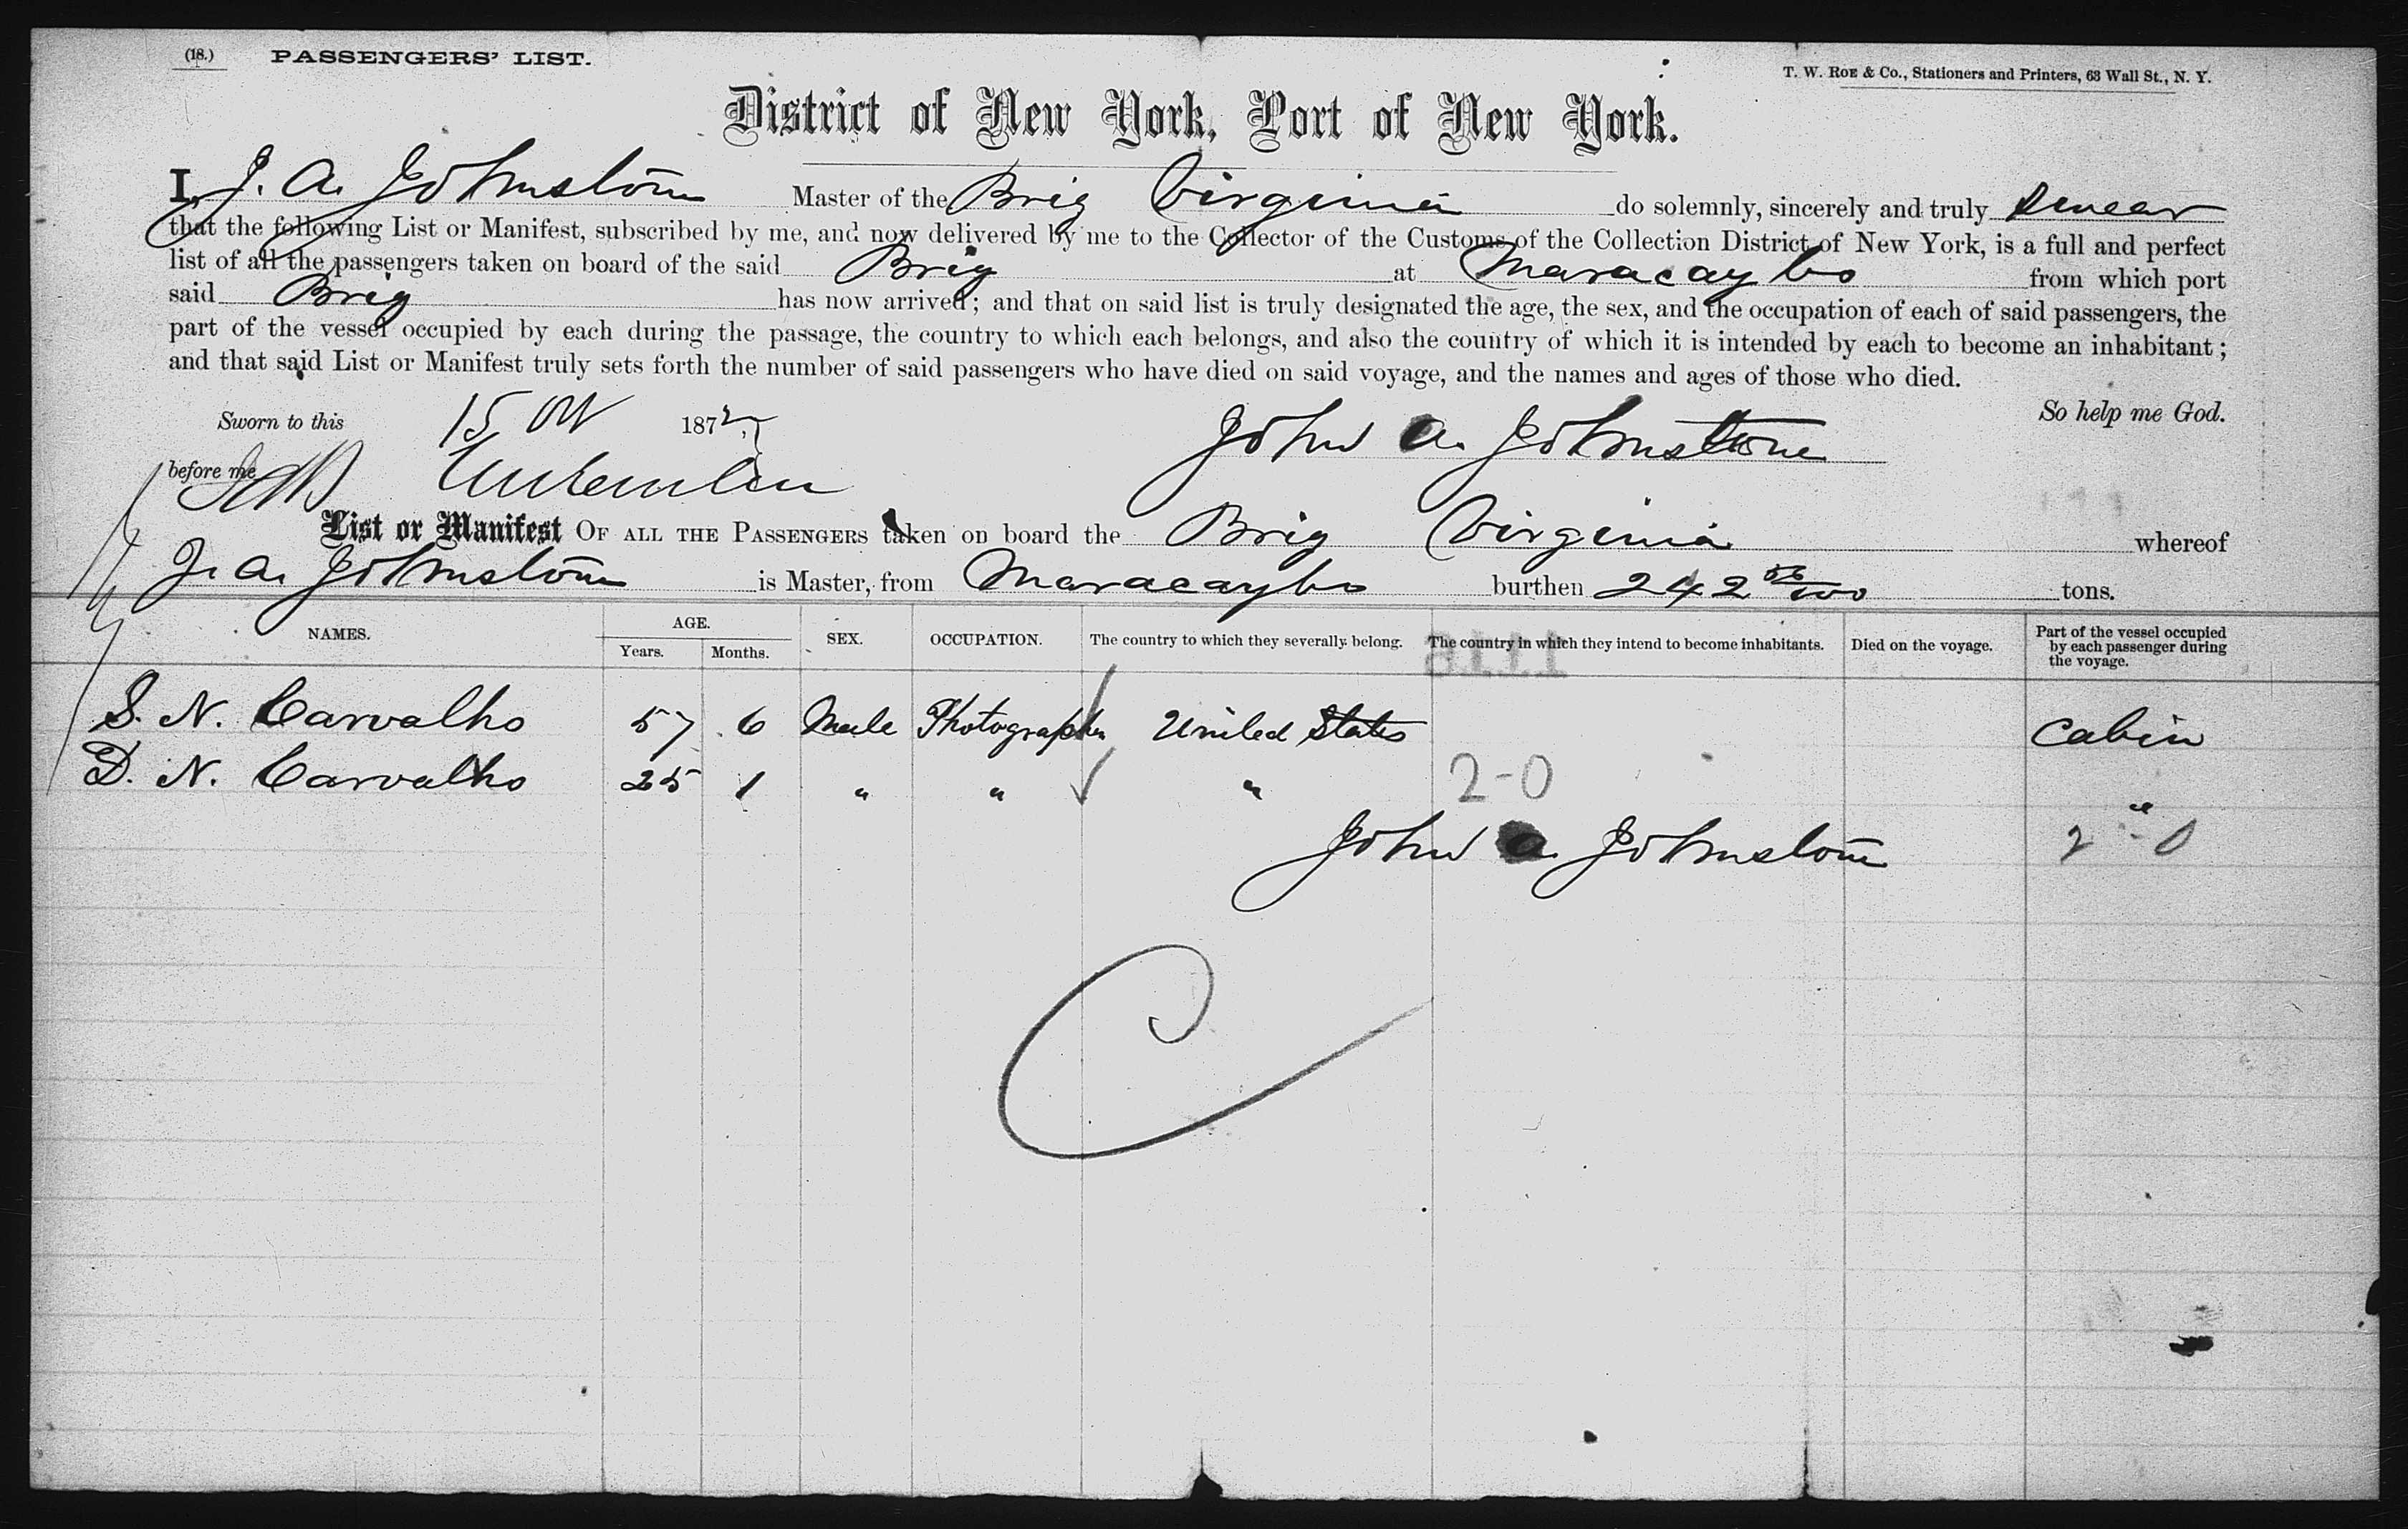 (18.) PASSENGERS' LIST.
T. W. ROE & Co., Stationers and Printers, 63 Wall St., N. Y.
District of New York, Port of New York.
I, J. A. Johnstone Master of the Brig Virginia do solemnly, sincerely and truly Swear
that the following List or Manifest, subscribed by me, and now delivered by me to the Collector of the Customs of the Collection District of New York, is a full and perfect
list of all the passengers taken on board of the said Brig at Maracaybo from which port
said Brig has now arrived; and that on said list is truly designated the age, the sex, and the occupation of each of said passengers, the
part of the vessel occupied by each during the passage, the country to which each belongs, and also the country of which it is intended by each to become an inhabitant;
and that said List or Manifest truly sets forth the number of said passengers who have died on said voyage, and the names and ages of those who died.
So help me God.
Sworn to this 15 Oct 1872
John A. Johnstone
before me
List or Manifest OF ALL THE PASSENGERS taken on board the Brig Virginia whereof
J. A. Johnstone is Master, from Maracaybo burthen 242 56/100 tons.
NAMES. AGE. SEX. OCCUPATION. The country to which they severally belong. The country in which they intend to become inhabitants. Died on the voyage. Part of the vessel occupied by each passenger during the voyage.
Years. Months.
S. N. Carvalho 57 6 Male Photographer United States Cabin
D. N. Carvalho 25 1 " " " 2-0 "
John A. Johnstone 2-0
C